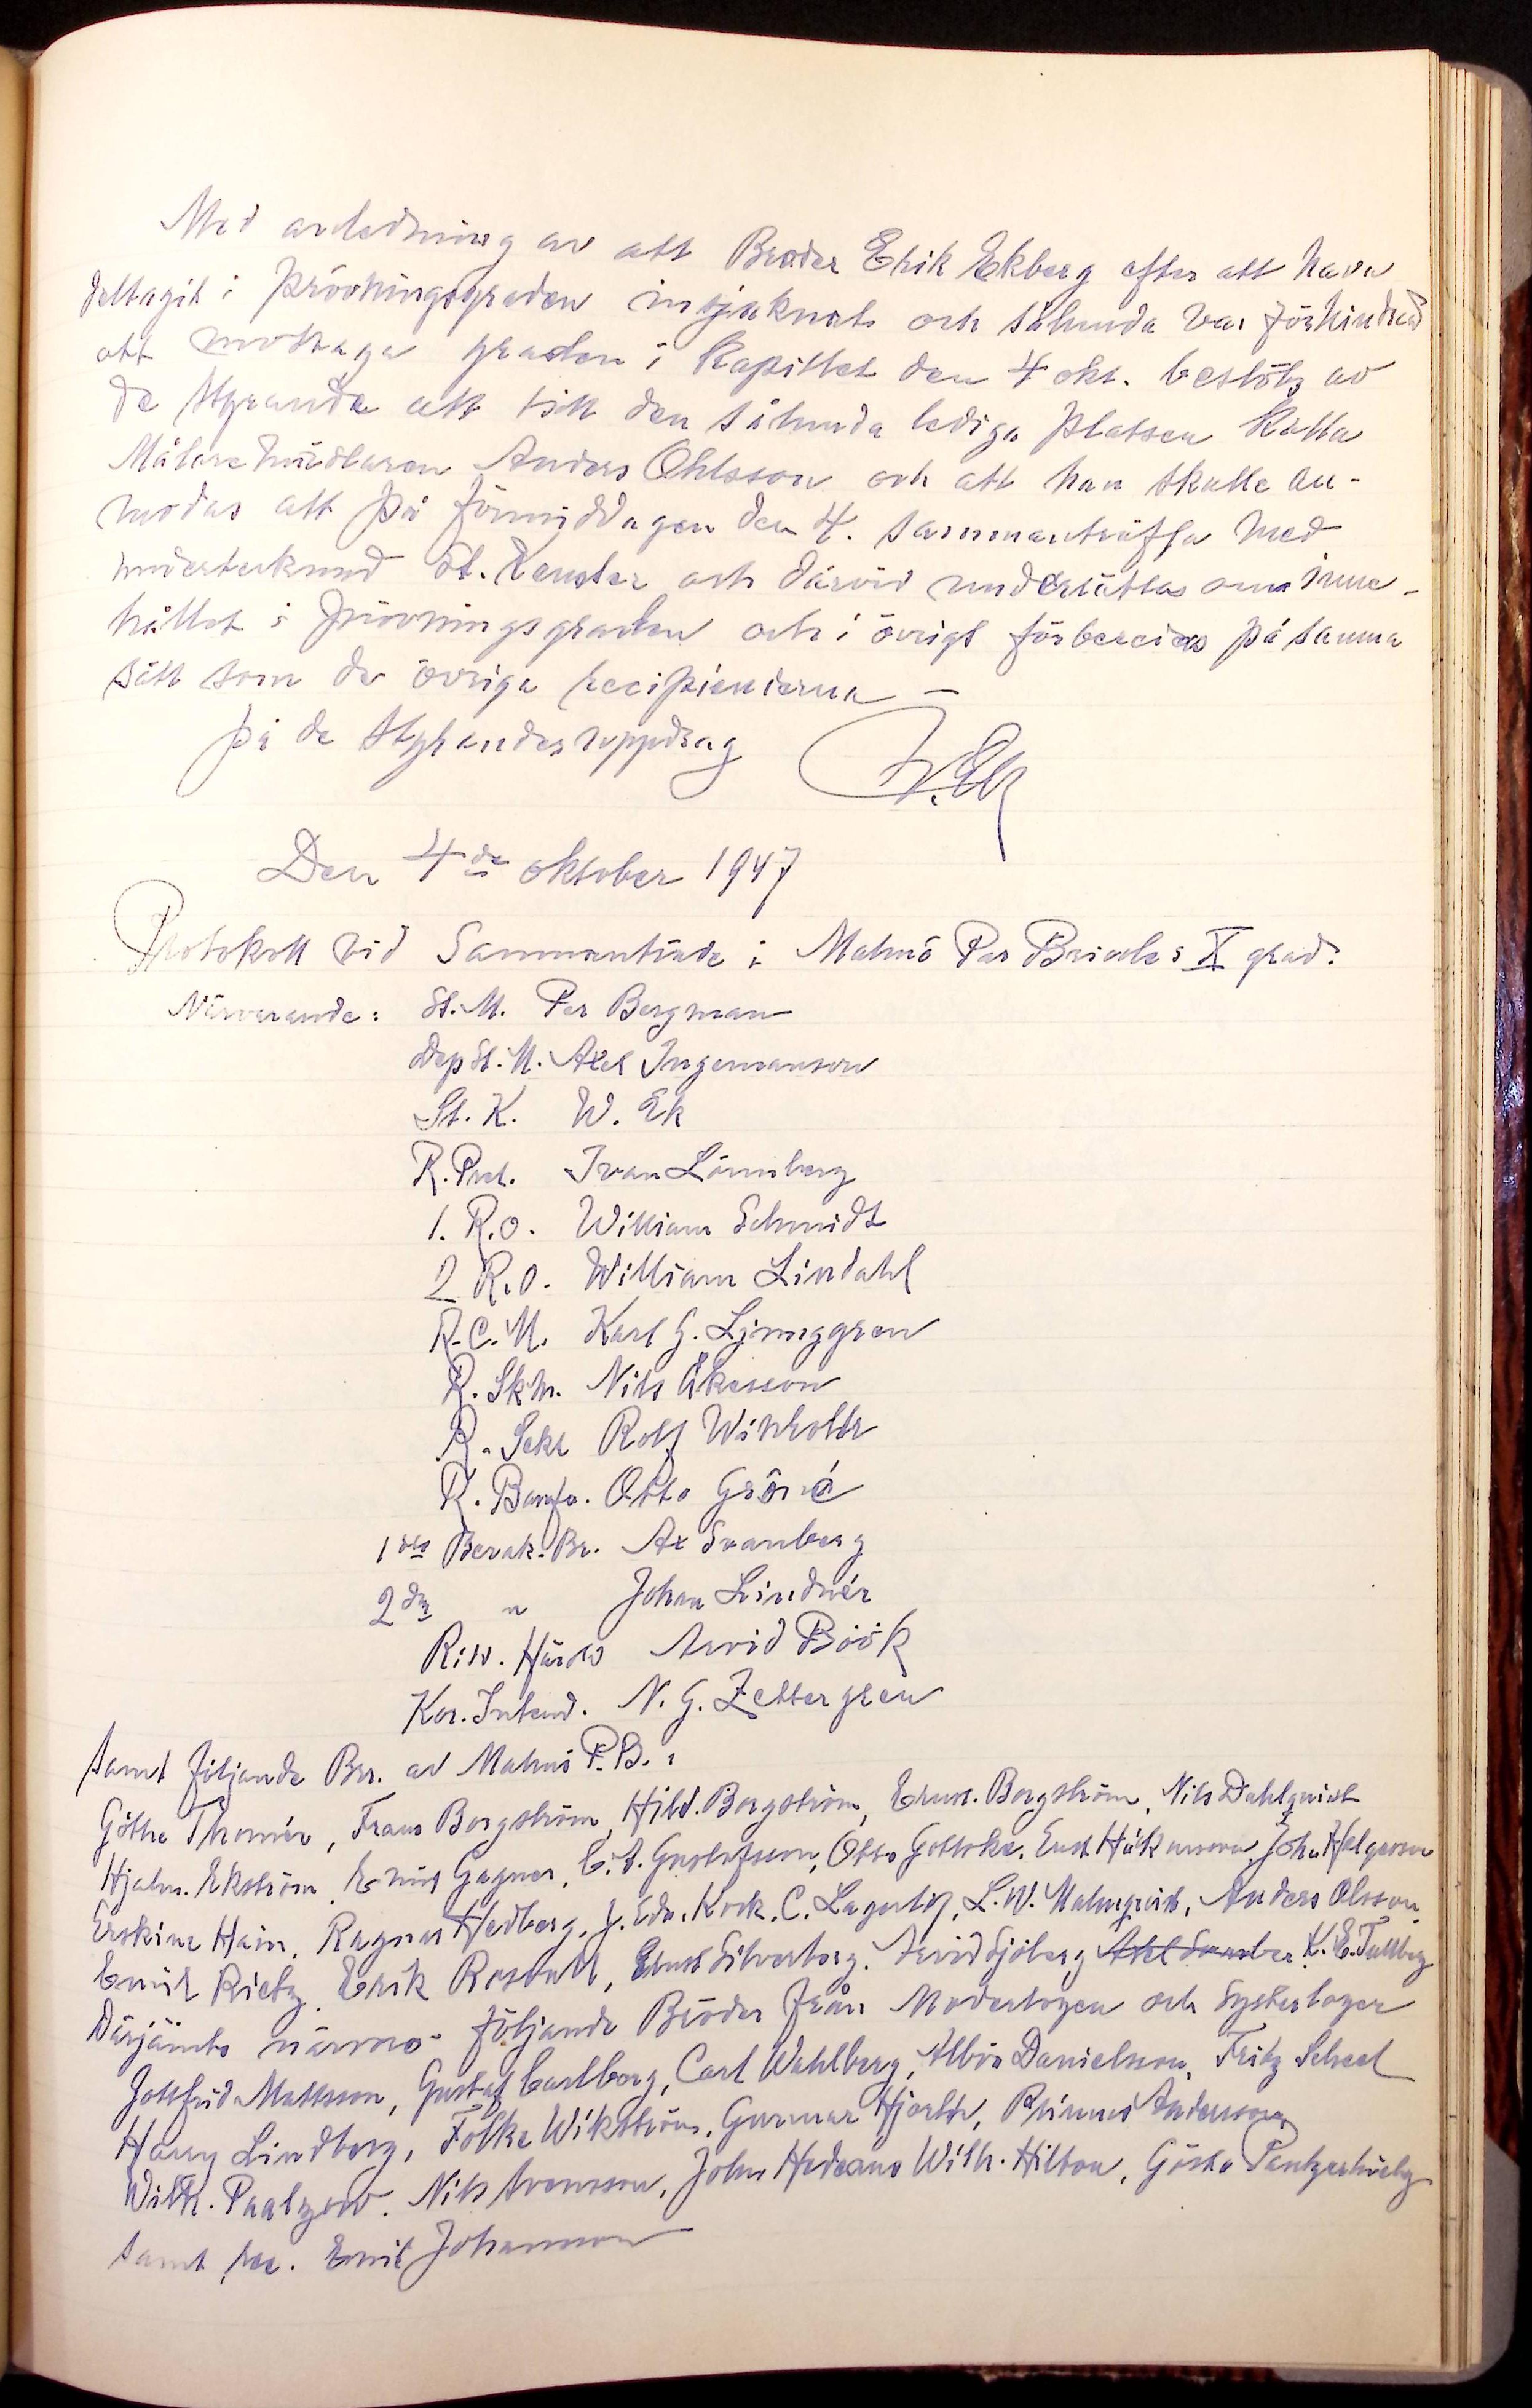 Med anledning av att Broder Erik Ekberg efter att hava
deltagit i prövningsgraden insjuknat och sålunda var förhindrad
att mottaga graden i Kapitlet den 4 okt. beslöts av
de styrande att till den sålunda lediga platsen kalla
Målarehandlaren Anders Ohlsson och att han skulle an-
modas att på förmiddagen den 4. sammanträffa med
undertecknad St. Kansler och därvid underrättas om inne-
hållet i prövningsgraden och i övrigt förberedas på samma
sätt som de övriga recipienderna –
på de styrandes uppdrag W. Ek
Den 4de oktober 1947
Protokoll vid Sammanträde i Malmö Par Bricoles X grad.
Närvarande: St. M. Per Bergman
Dep St. M. Axel Ingemanson
St. K. W. Ek
R. Pret. Ivan Lönnberg
1. R.O. William Schmidt
2 R.O. William Lindahl
R.C.M. Karl G. Ljunggren
R. Skm. Nils Åkesson
R. Sekr Rolf Winholtz
R. Banfr. Otto Gröné
1sta Bevak. Br. Ax Svanberg
2dra " Johan Lindnér
Rits. Härold Arvid Böök
Kor. Intend. N. G. Zettergren
samt följande Brr. av Malmö P. B. :
Göthe Thomér, Frans Borgström, Hild. Borgström, Ernst. Borgström, Nils Dahlquist
Hjalm. Ekström, Gagner, C. A. Gustafsson, Otto Gottskr. Håkansson, John Helgesson
Erskine Hain, Ragnar Hedberg, J. Edv. Kock, C. Lagerlöf, L. W. Malmquist, Anders Olsson,
Emil Rietz, Erik Rosvall, Ernst Silverberg, Arvid Sjöberg K. E. Tullberg
Därjämte närvoro följande Bröder från Moderlogen och Systerloger
Gottfrid Mattsson, Gustaf Carlborg, Carl Wahlberg, Albin Danielsson, Fritz Scheel
Harry Lindberg, Folke Wikström, Gunnar Hjorth, Andersson
Wilh. Paalzow. Nils Svensson, John Wilh. Hilton, Gösta
samt rec. Emil Johansson